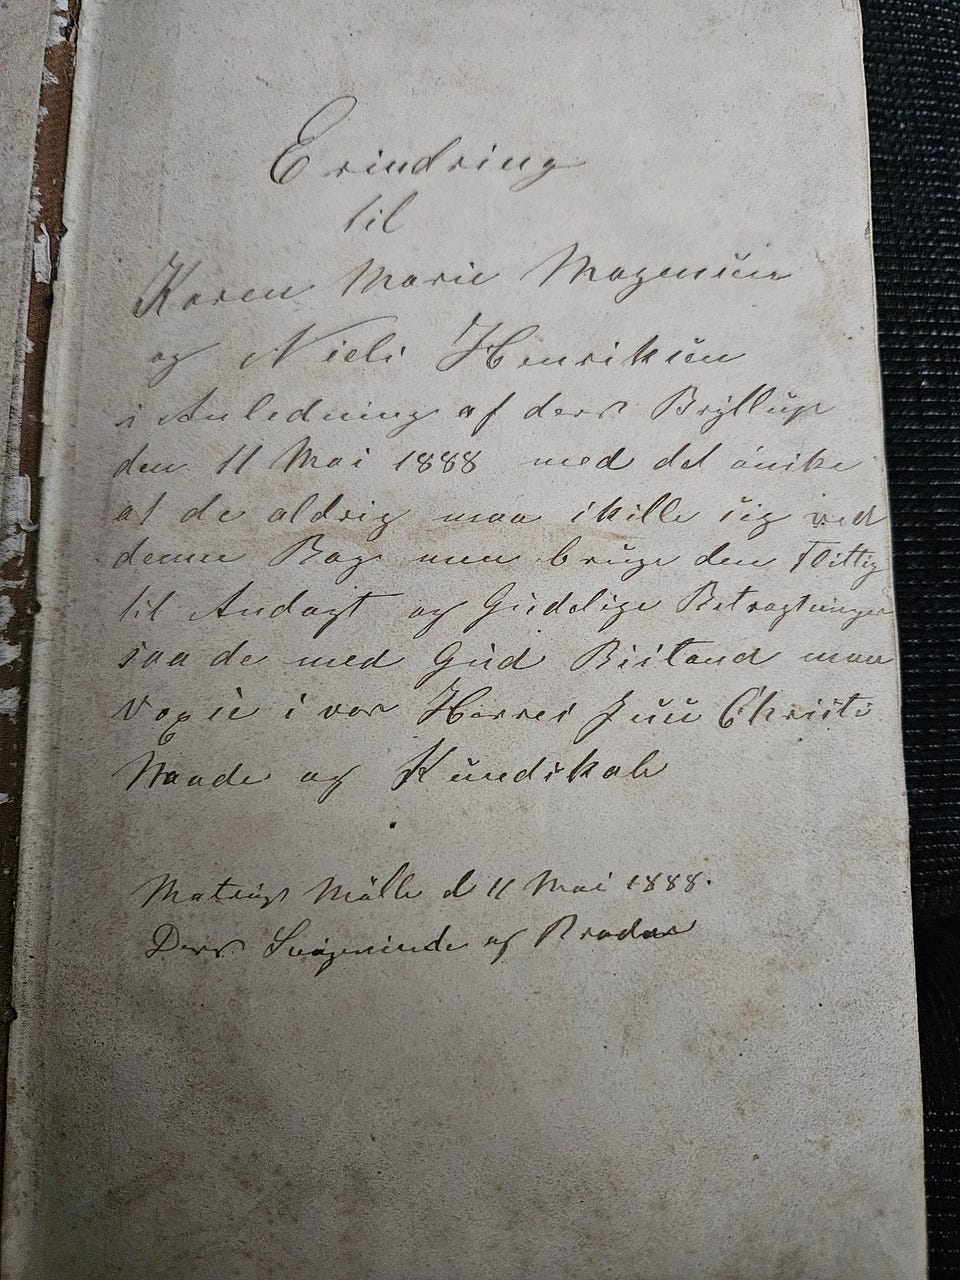 Erindring
til
Karen Marie Mogensen
og Niels Henriksen
i Anledning af deres Bryllup
den 11 Mai 1888 med det ønske
at de aldrig maa skille sig ved
denne Bog men bruge den flittig
til Andagt og Gudelige Betragtninger
saa de med Gud Bistand maa
voxse i vor Herres Jesu Christi
Naade og Kundskab
Mølle d 11 Mai 1888.
Deres Svigerinde og Broder